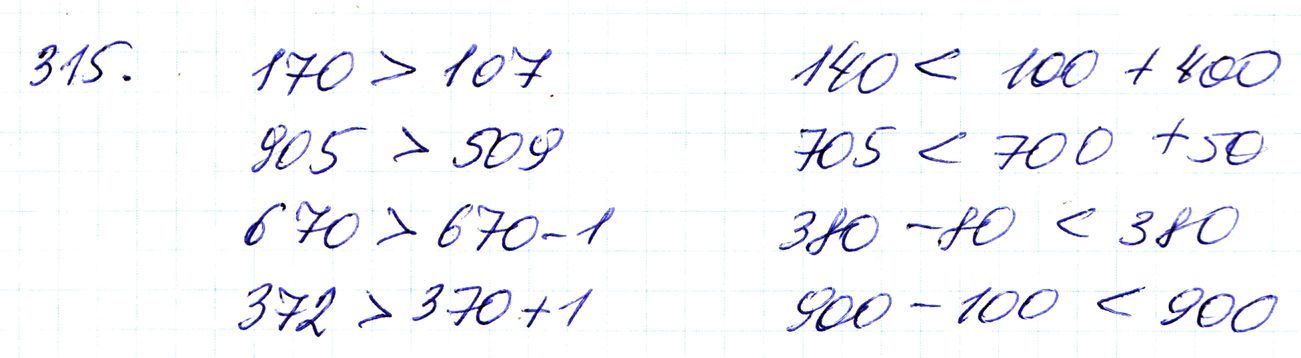 315. 170 > 107 140 < 100 + 400
905 > 509 705 < 700 + 50
670 > 670 - 1 380 - 80 < 380
372 > 370 + 1 900 - 100 < 900